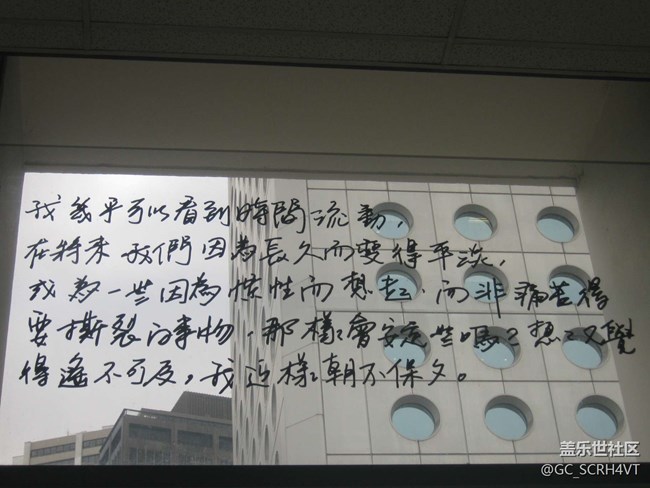 我幾乎可以看到時間流動，
在將來我們因為長久而變得平淡，
或為一些因為慣性而想起、而非痛苦得
要撕裂的事物，那樣會安定些嗎？想想又覺
得遙不可及，我這樣朝不保夕。
盖乐世社区
@GC_SCRH4VT